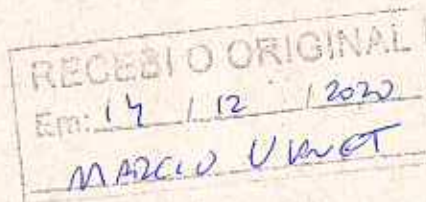 RECEBI O ORIGINAL
Em: 14 / 12 / 2020
MARCIO